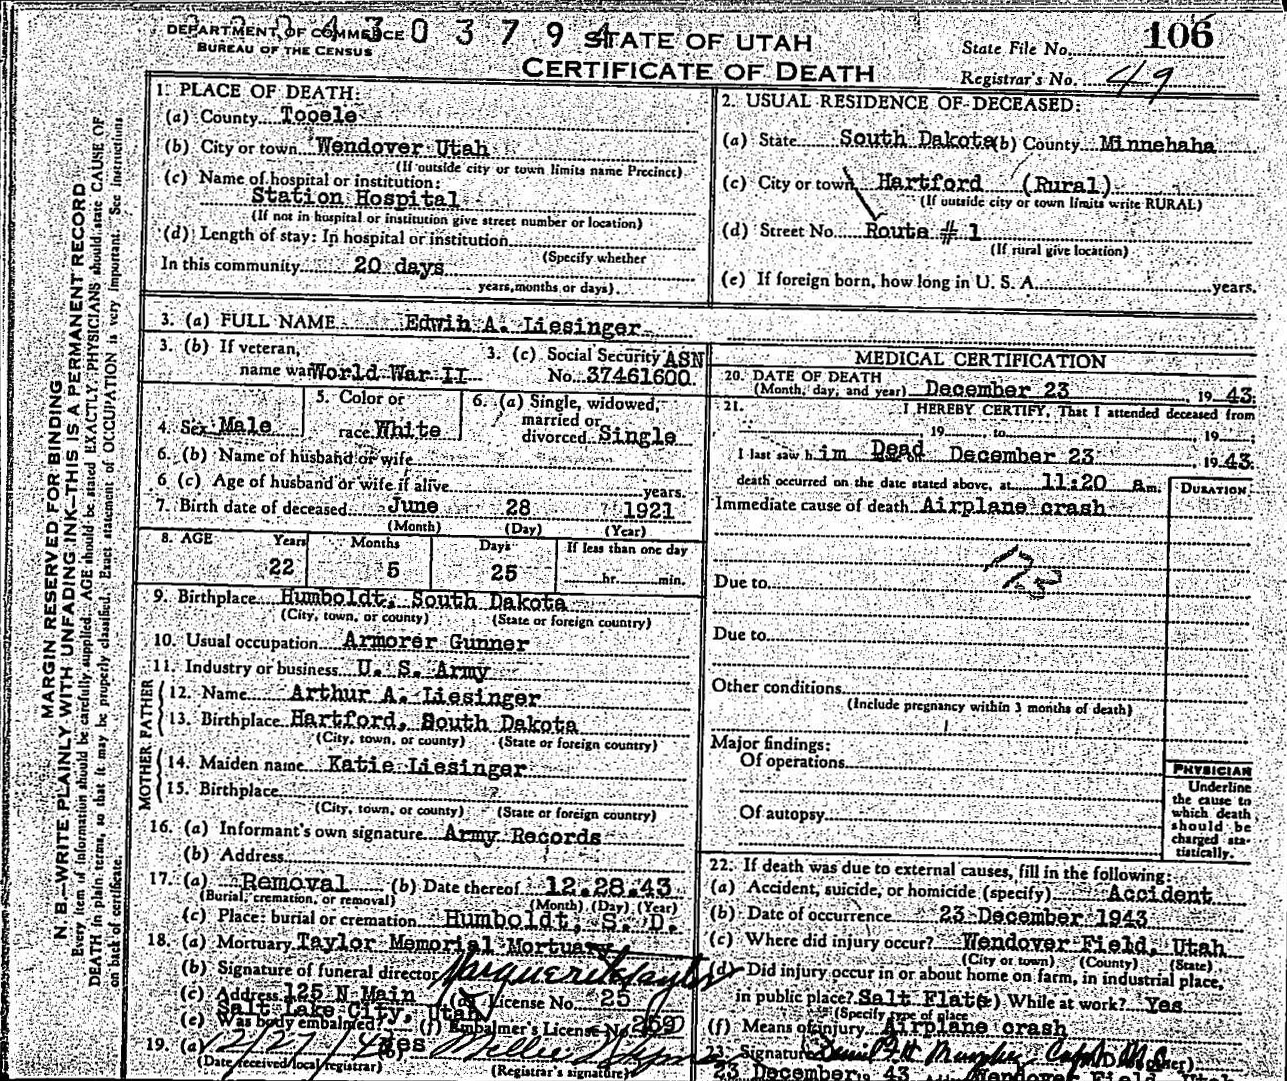 DEPARTMENT OF COMMERCE
BUREAU OF THE CENSUS
0 3 7 9 4
STATE OF UTAH
CERTIFICATE OF DEATH
State File No. 106
Registrar's No. 49
MARGIN RESERVED FOR BINDING
N. B.—WRITE PLAINLY, WITH UNFADING INK—THIS IS A PERMANENT RECORD
Every item of information should be carefully supplied. AGE should be stated EXACTLY. PHYSICIANS should state CAUSE OF
DEATH in plain terms, so that it may be properly classified. Exact statement of OCCUPATION is very important. See instructions
on back of certificate.
1. PLACE OF DEATH:
(a) County Tooele
(b) City or town Wendover Utah
(If outside city or town limits name Precinct)
(c) Name of hospital or institution:
Station Hospital
(If not in hospital or institution give street number or location)
(d) Length of stay: In hospital or institution
(Specify whether
In this community 20 days
years, months or days).
2. USUAL RESIDENCE OF DECEASED:
(a) State South Dakota (b) County Minnehaha
(c) City or town Hartford (Rural)
(If outside city or town limits write RURAL)
(d) Street No. Route # 1
(If rural give location)
(e) If foreign born, how long in U. S. A. years.
3. (a) FULL NAME Edwin A. Liesinger
3. (b) If veteran,
name war World War II
3. (c) Social Security ASN
No. 37461600
4. Sex Male
5. Color or
race White
6. (a) Single, widowed,
married or
divorced Single
6. (b) Name of husband or wife
6 (c) Age of husband or wife if alive years.
7. Birth date of deceased June 28 1921
(Month) (Day) (Year)
8. AGE Years Months Days If less than one day
22 5 25 hr. min.
9. Birthplace Humboldt, South Dakota
(City, town, or county) (State or foreign country)
10. Usual occupation Armorer Gunner
11. Industry or business U. S. Army
FATHER
12. Name Arthur A. Liesinger
13. Birthplace Hartford, South Dakota
(City, town, or county) (State or foreign country)
MOTHER
14. Maiden name Katie Liesinger
15. Birthplace ?
(City, town, or county) (State or foreign country)
16. (a) Informant's own signature Army Records
(b) Address
17. (a) Removal (b) Date thereof 12.28.43
(Burial, cremation, or removal) (Month) (Day) (Year)
(c) Place: burial or cremation Humboldt, S. D.
18. (a) Mortuary Taylor Memorial Mortuary
(b) Signature of funeral director Marguerite Taylor
(c) Address 125 N Main (d) License No. 25
Salt Lake City, Utah
(e) Was body embalmed? Yes (f) Embalmer's License No. 269
19. (a) 12/27/43 (b)
(Date received local registrar) (Registrar's signature)
MEDICAL CERTIFICATION
20. DATE OF DEATH
(Month, day, and year) December 23, 19 43.
21. I HEREBY CERTIFY, That I attended deceased from
19 , to , 19
I last saw him Dead on December 23, 19 43.
death occurred on the date stated above, at 11:20 a m.
DURATION
Immediate cause of death Airplane crash
Due to
Due to
Other conditions
(Include pregnancy within 3 months of death)
Major findings:
Of operations
Of autopsy
PHYSICIAN
Underline
the cause to
which death
should be
charged sta-
tistically.
22. If death was due to external causes, fill in the following:
(a) Accident, suicide, or homicide (specify) Accident
(b) Date of occurrence 23 December 1943
(c) Where did injury occur? Wendover Field, Utah
(City or town) (County) (State)
(d) Did injury occur in or about home on farm, in industrial place,
in public place? Salt Flats (e) While at work? Yes
(Specify type of place
(f) Means of injury Airplane crash
23. Signature
23 December 43 Wendover Field